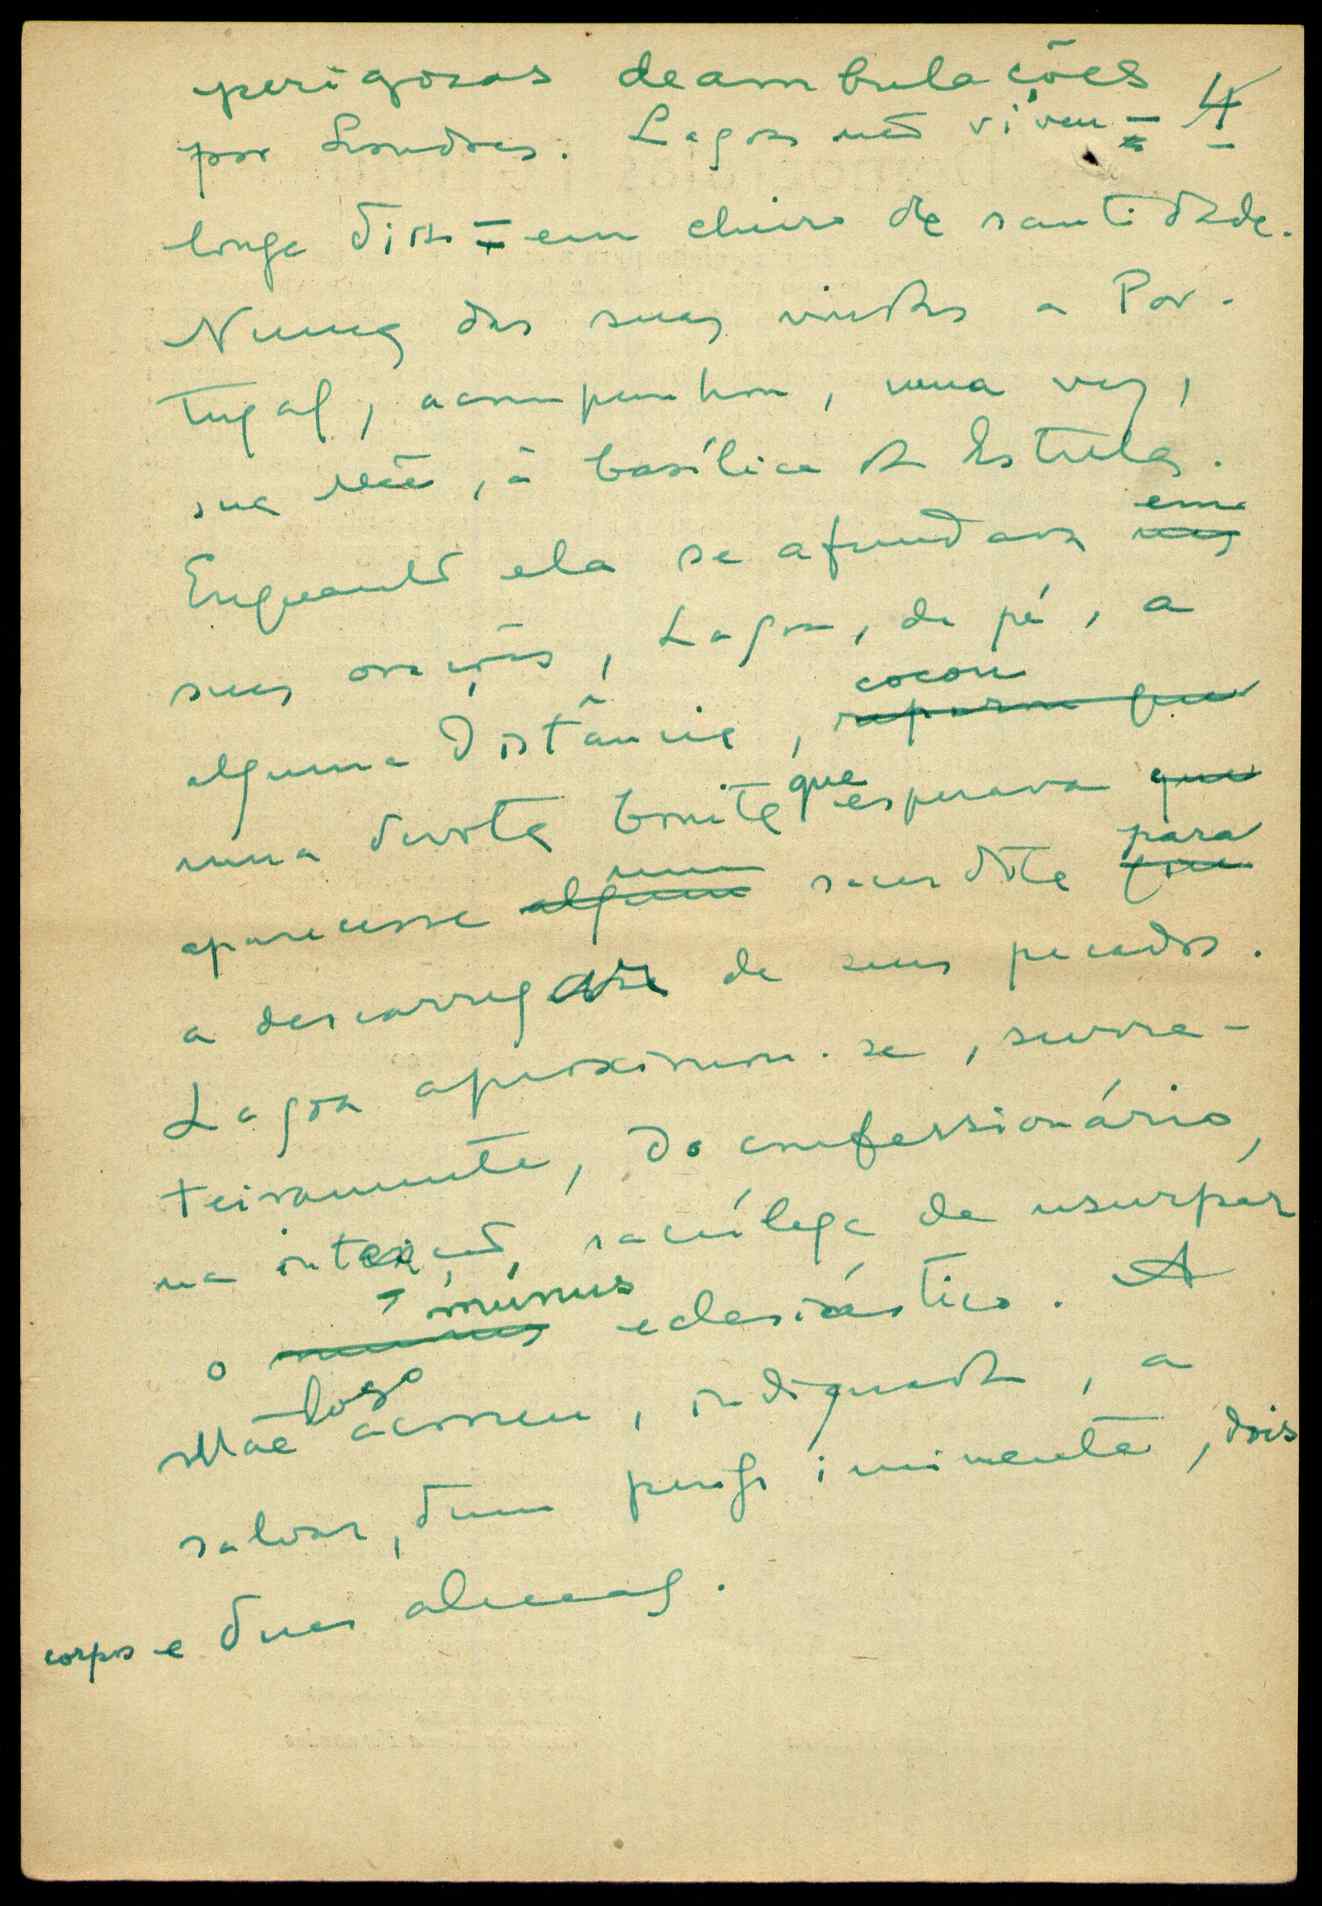 perigosas deambulações
4
por Londres. Lagoa não viveu –
longe disso – em cheiro de santidade.
Numa das suas vindas a Por-
tugal, acompanhou, uma vez,
sua Mãe, à basílica da Estrela.
em
Enquanto ela se afundava nas
suas orações, Lagoa, de pé, a
cocou
alguma distância, reparou que
que
uma devota bonita esperava que
um para
aparecesse algum sacerdote que
a descarregar de seus pecados.
Lagoa aproximou-se, surra-
teiramente, do confessionário,
na intenção, sacrílega de usurpar
múnus
o munus eclesiástico. A
logo
Mãe acorreu, indignada, a
salvar, dum perigo iminente, dois
corpos e duas almas.